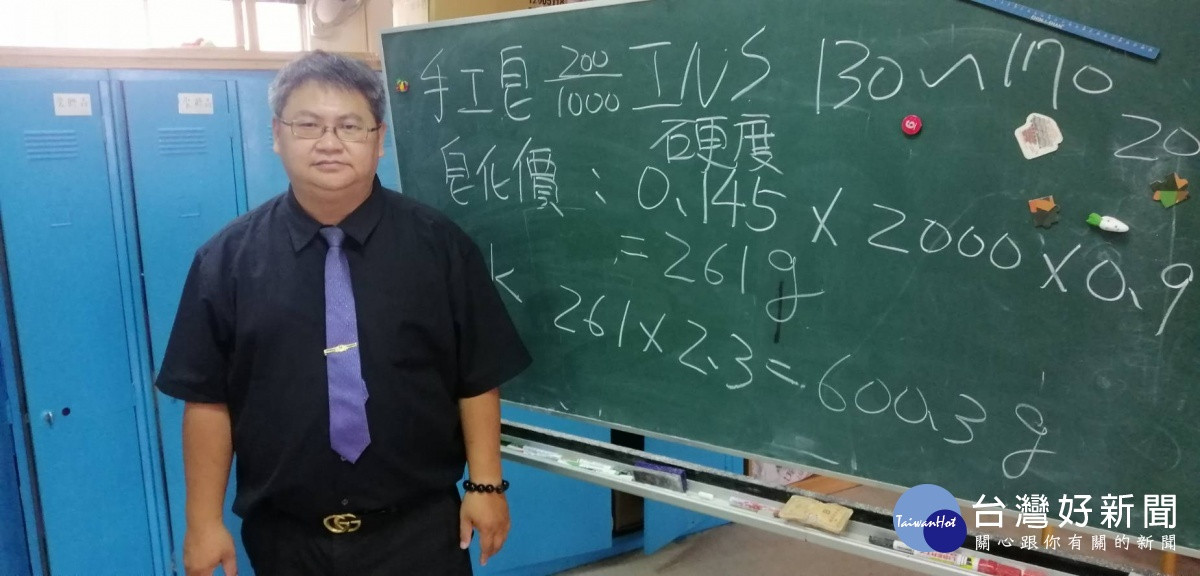 手工皂 200/1000 INS 130~170
硬度
20
皂化價：0.145 × 2000 × 0.9
= 261g
水 261 × 2.3 = 600.3g
TaiwanHot
台灣好新聞
關心跟你有關的新聞